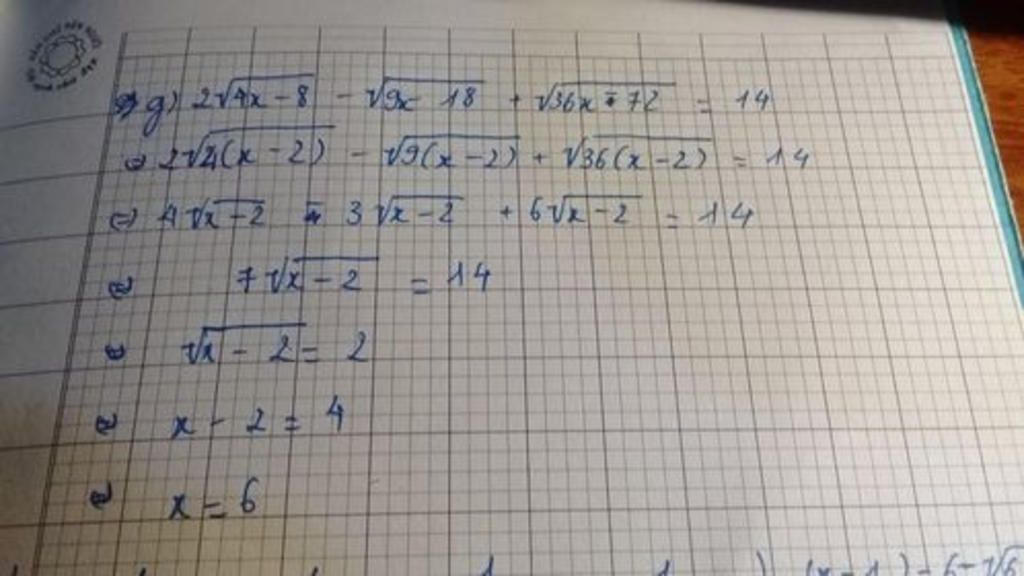 g) 2√(4x-8) - √(9x-18) + √(36x-72) = 14
⇔ 2√(4(x-2)) - √(9(x-2)) + √(36(x-2)) = 14
⇔ 4√(x-2) - 3√(x-2) + 6√(x-2) = 14
⇔ 7√(x-2) = 14
⇔ √(x-2) = 2
⇔ x - 2 = 4
⇔ x = 6